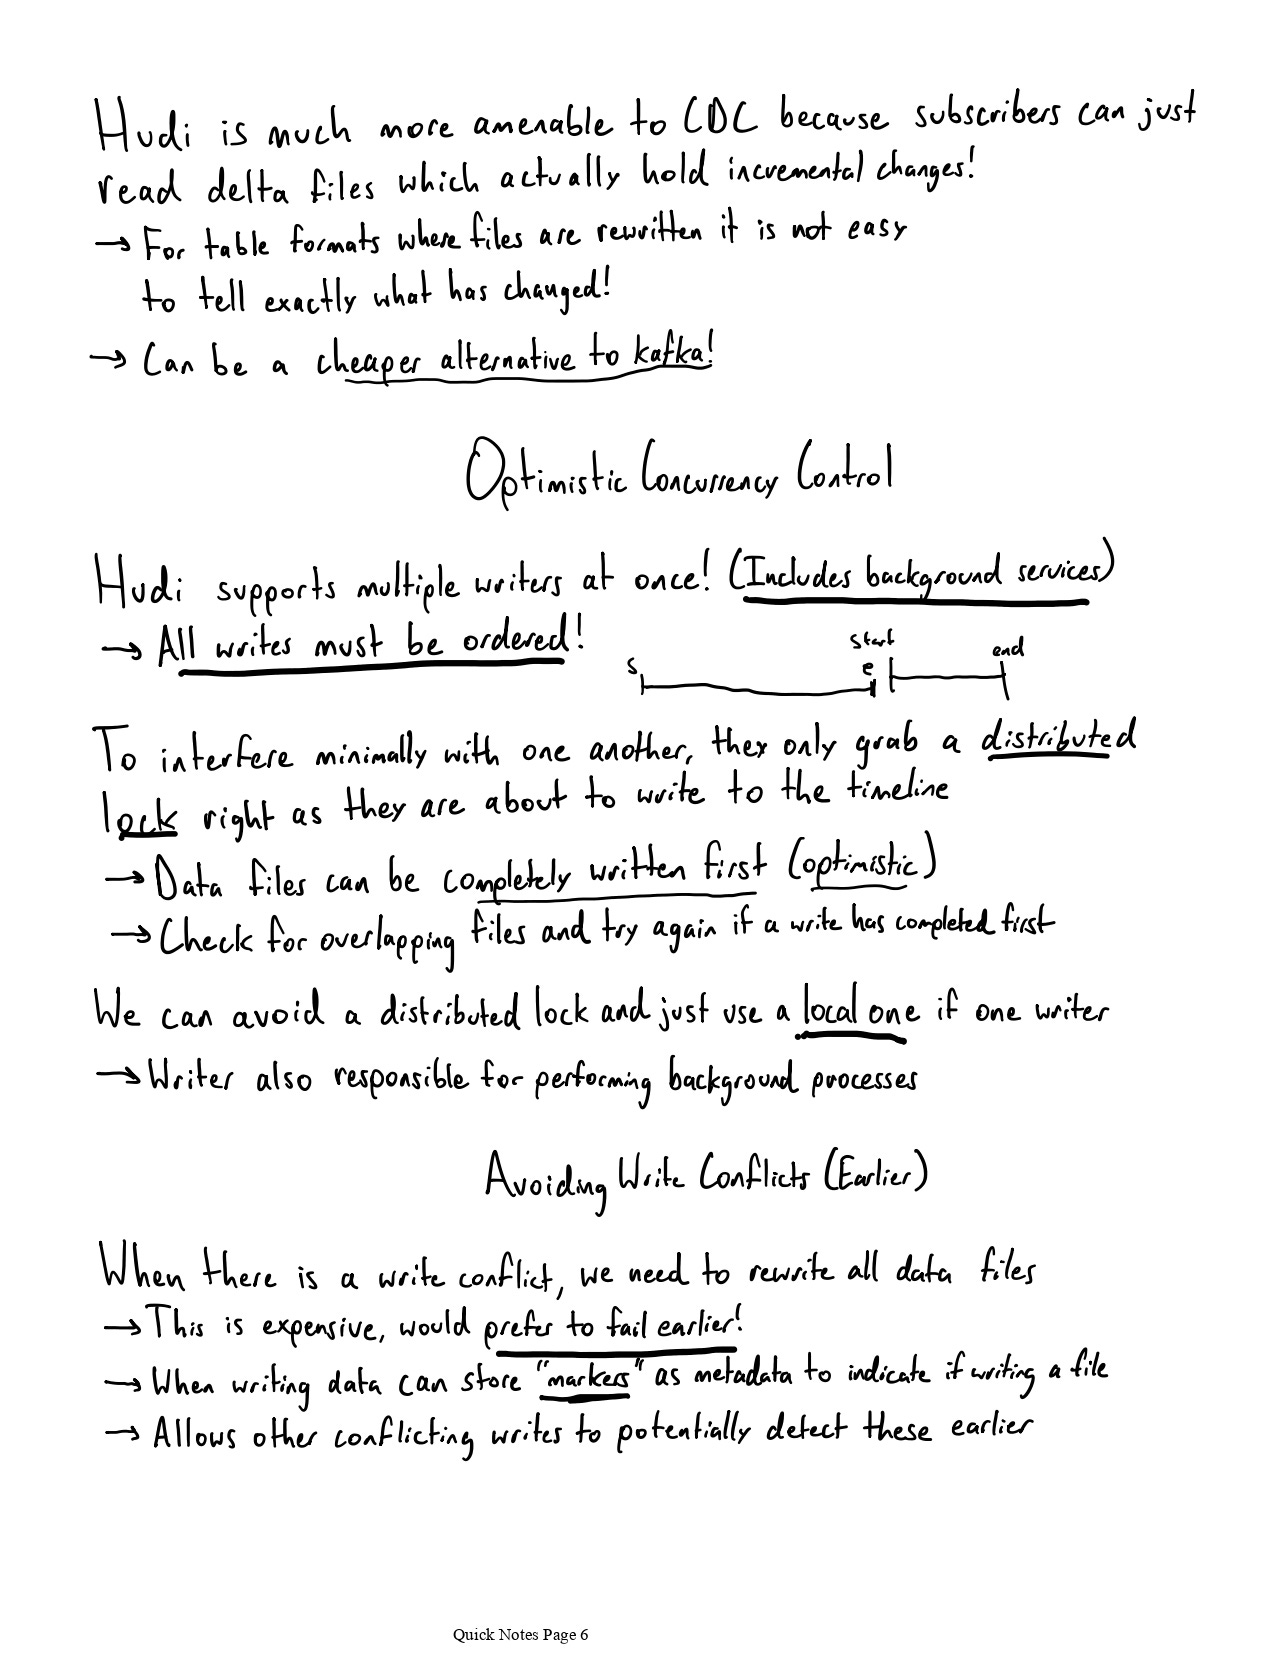 Hudi is much more amenable to CDC because subscribers can just
read delta files which actually hold incremental changes!
→ For table formats where files are rewritten it is not easy
to tell exactly what has changed!
→ Can be a cheaper alternative to kafka!
Optimistic Concurrency Control
Hudi supports multiple writers at once! (Includes background services)
→ All writes must be ordered!
s e start end
To interfere minimally with one another, they only grab a distributed
lock right as they are about to write to the timeline
→ Data files can be completely written first (optimistic)
→ Check for overlapping files and try again if a write has completed first
We can avoid a distributed lock and just use a local one if one writer
→ Writer also responsible for performing background processes
Avoiding Write Conflicts (Earlier)
When there is a write conflict, we need to rewrite all data files
→ This is expensive, would prefer to fail earlier!
→ When writing data can store "markers" as metadata to indicate if writing a file
→ Allows other conflicting writes to potentially detect these earlier
Quick Notes Page 6